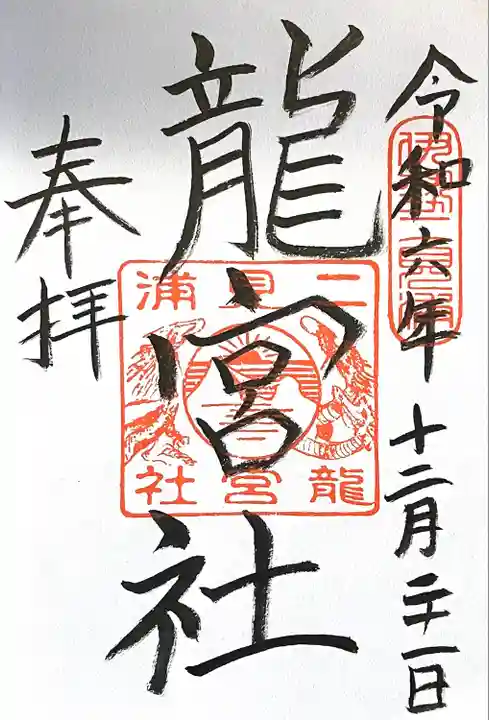 令和六年十二月二十一日
龍宮社
奉拝
二見浦
龍宮社